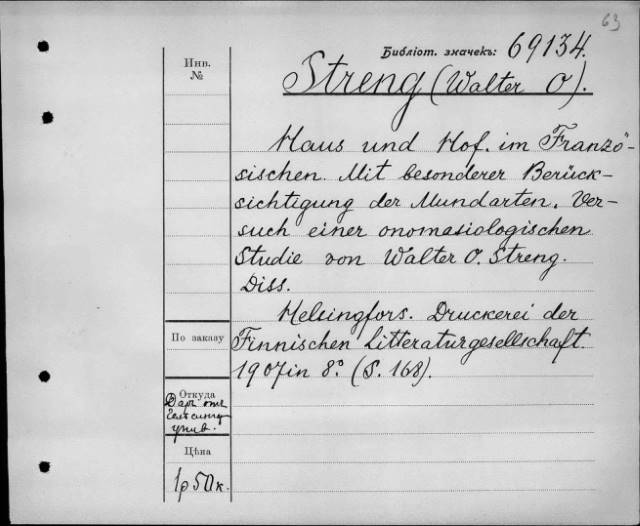 63
Библіот. значекъ: 69134.
Инв.
№
Streng (Walter O).
Haus und Hof. im Franzö-
sischen. Mit besonderer Berück-
sichtigung der Mundarten. Ver-
such einer onomasiologischen
Studie von Walter O. Streng.
Diss.
Helsingfors. Druckerei der
По заказу
Finnischen Litteraturgesellschaft
1907 in 8º. (S. 168).
Откуда
Даръ отъ
унив.
Цѣна
1р 50к.